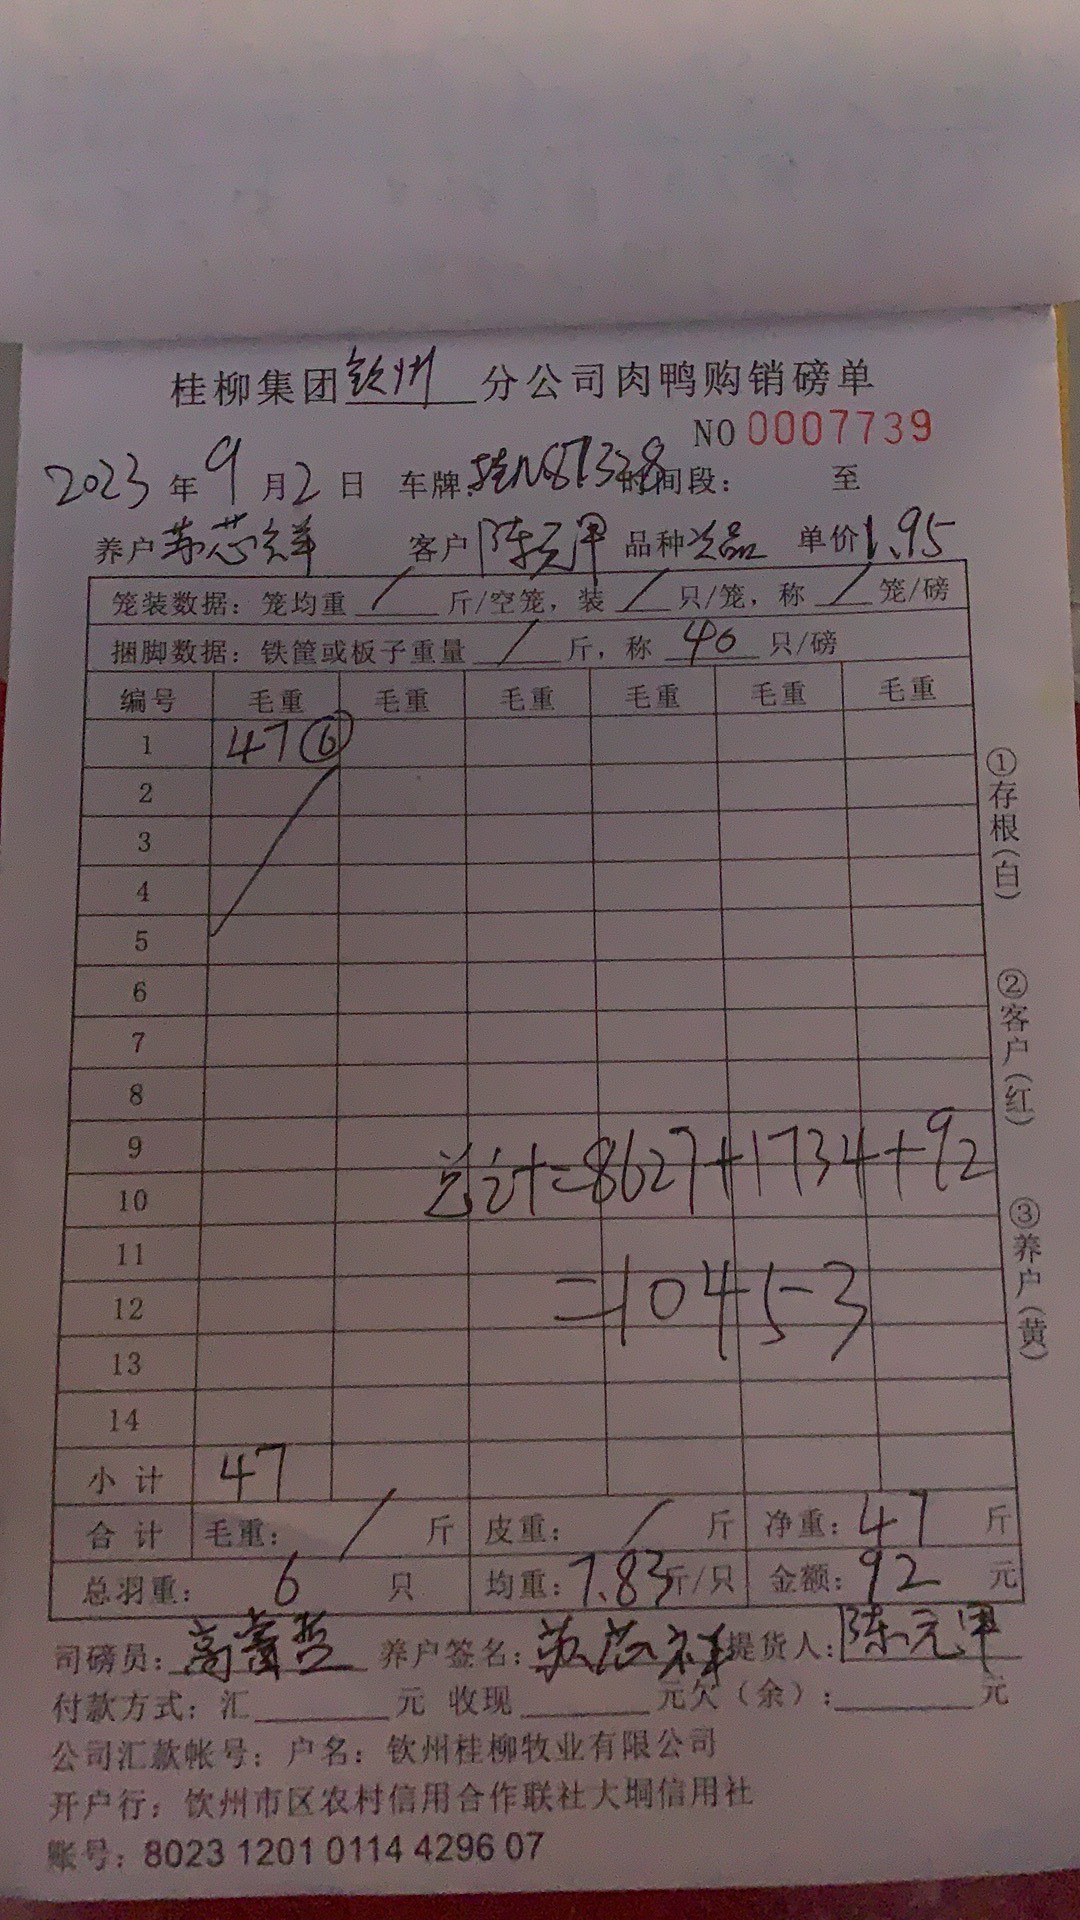 桂柳集团钦州分公司肉鸭购销磅单
NO 0007739
2023年9月2日 车牌:桂N87328 时间段: 至
养户 苏芯祥 客户 陈元甲 品种 次品 单价 1.95
笼装数据: 笼均重 / 斤/空笼, 装 / 只/笼, 称 / 笼/磅
捆脚数据: 铁筐或板子重量 / 斤, 称 40 只/磅
编号 毛重 毛重 毛重 毛重 毛重 毛重
1 47 ⑥
2
3
4
5
6
7
8
9
10
总计=8627+1734+92
11
12
=10453
13
14
小计 47
合计 毛重: / 斤 皮重: / 斤 净重: 47 斤
总羽重: 6 只 均重: 7.83斤/只 金额: 92 元
司磅员: 高 养户签名: 苏芯祥 提货人: 陈元甲
付款方式: 汇 元 收现 元欠(余): 元
公司汇款帐号: 户名: 钦州桂柳牧业有限公司
开户行: 钦州市区农村信用合作联社大垌信用社
账号: 8023 1201 0114 4296 07
①存根(白)
②客户(红)
③养户(黄)